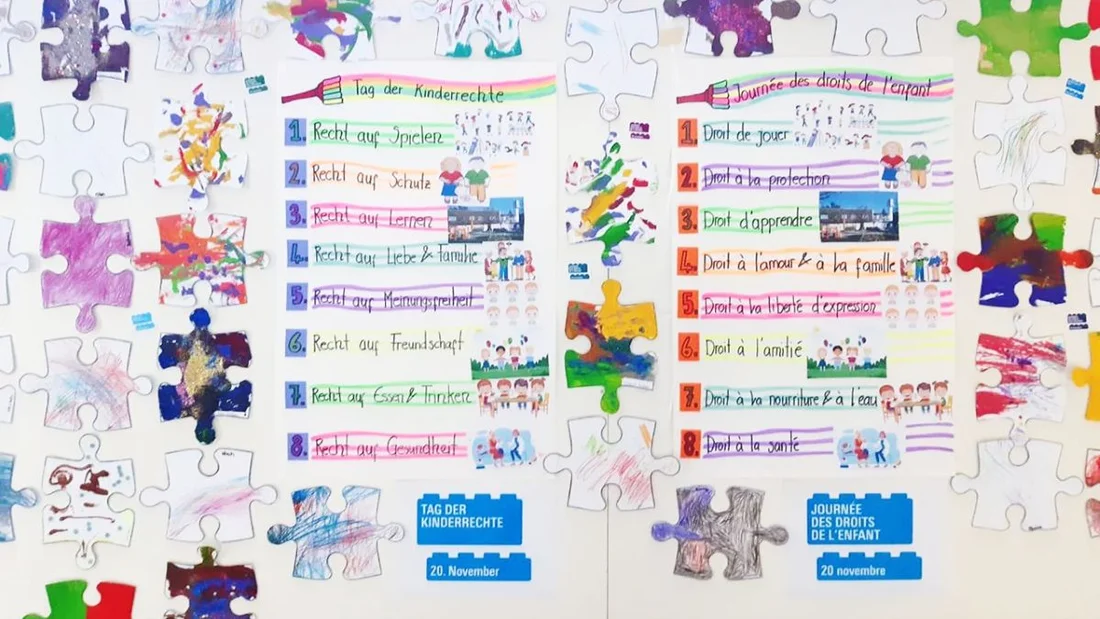 Tag der Kinderrechte
1. Recht auf Spielen
2. Recht auf Schutz
3. Recht auf Lernen
4. Recht auf Liebe & Familie
5. Recht auf Meinungsfreiheit
6. Recht auf Freundschaft
7. Recht auf Essen & Trinken
8. Recht auf Gesundheit
TAG DER
KINDERRECHTE
20. November
Journée des droits de l'enfant
1. Droit de jouer
2. Droit à la protection
3. Droit d'apprendre
4. Droit à l'amour & à la famille
5. Droit à la liberté d'expression
6. Droit à l'amitié
7. Droit à la nourriture & à l'eau
8. Droit à la santé
JOURNÉE
DES DROITS
DE L'ENFANT
20 novembre